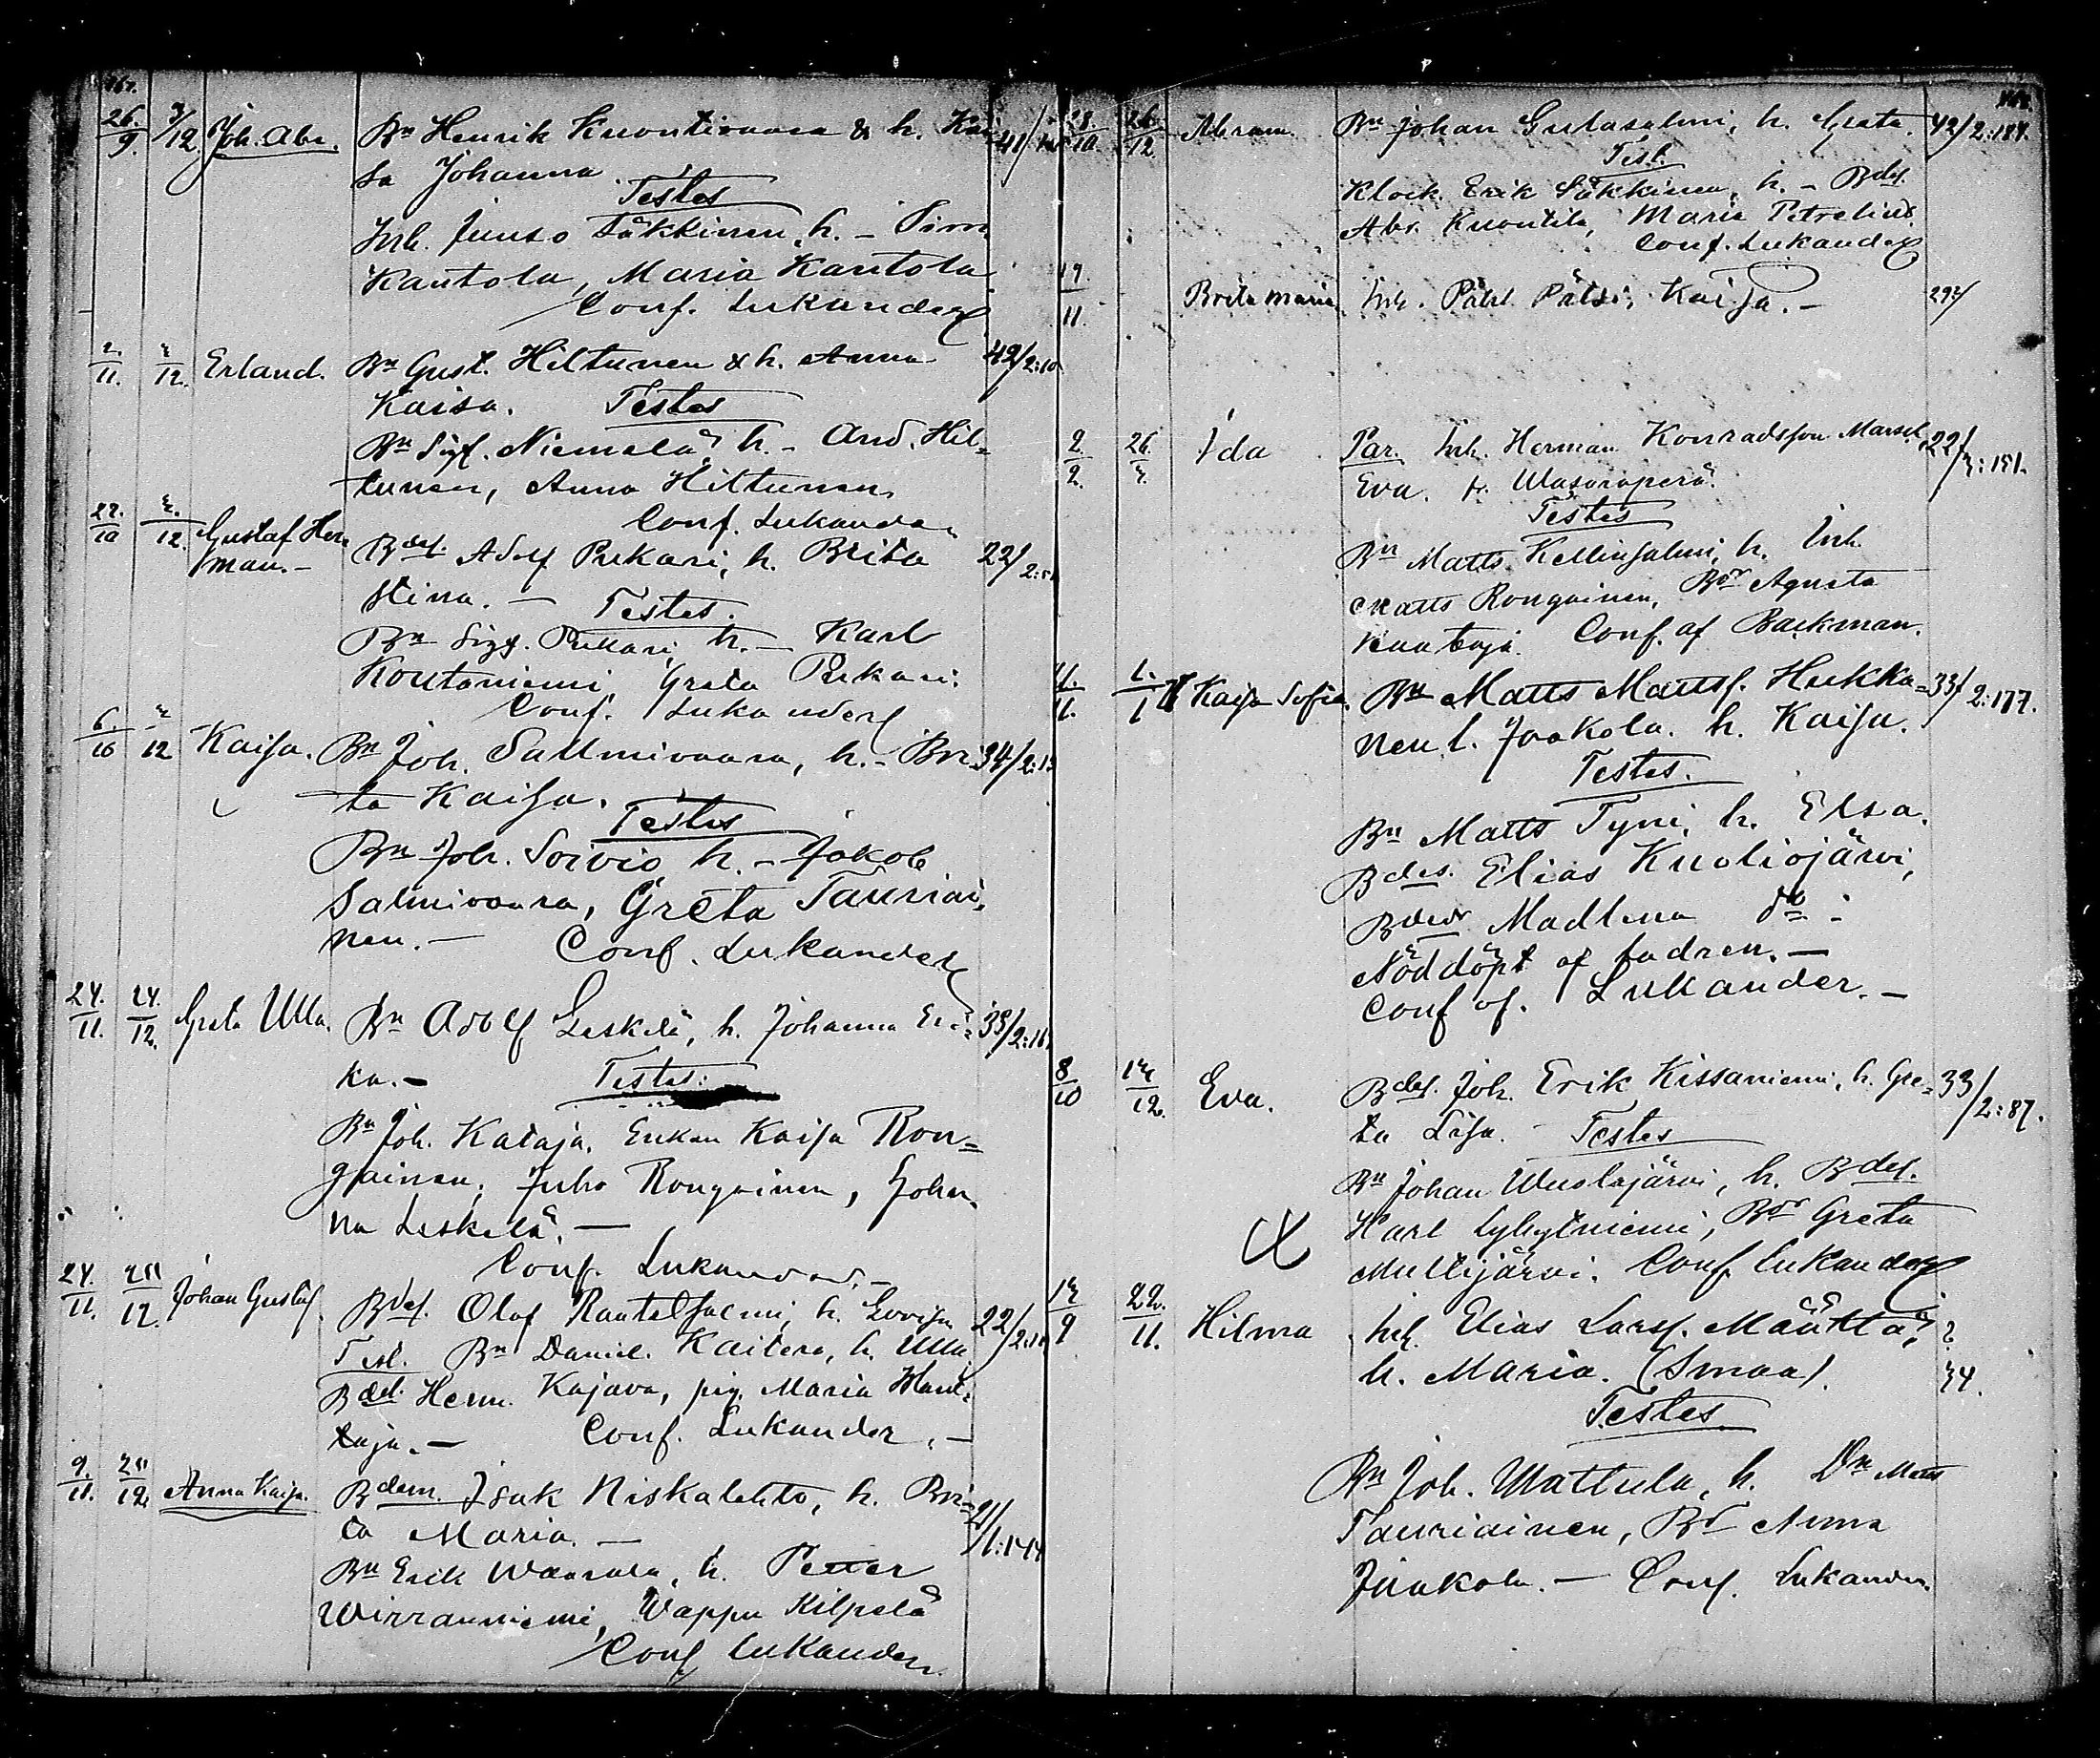 167.
26./9. 3/12 Joh. Abr. Bn Henrik Kuontivaara & h. Kai- 41/
sa Johanna.
Testes
Inh. Juuso Säkkinen, h. – Sim.
Kantola, Maria Kantola
Conf. Lukander
2./11. 2/12. Erland. Bn Gust. Hiltunen & h. Anna 42/2:10
Kaisa. Testes
Bn Sigf. Niemelä, h. – And. Hil-
tunen, Anna Hiltunen
Conf. Lukander
27./10 2./12. Gustaf Her-
man. – Bdes. Adolf Pukari, h. Brita 22/2:
Stina. – Testes.
Bn Sigf. Pukari h. – Karl
Koutaniemi, Greta Pukari.
Conf. Lukander
6./10 2/12 Kaisa. Bn Joh. Salmivaara, h. – Bri- 34/2:1
ta Kaisa.
Testes
Bn Joh. Soivio h. – Jakob
Salmivaara, Greta Tauriai-
nen. – Conf. Lukander
24./11. 24./12. Greta Ulla. Bn Adolf Leskelä, h. Johanna Eri- 33/2:16
ka. – Testes:
Bn Joh. Kataja, Enkan Kaisa Ron-
gainen, Juho Rongainen, Johan-
na Leskelä. –
Conf. Lukander. –
24./11. 12. Johan Gustaf. Bdes. Olof Rantalsalmi, h. Lovisa 22/2:10
Test. Bn Daniel Kaitera, h. Ulla
Bdes. Herm. Kajava, pig. Maria Haut-
taja. – Conf. Lukander. –
9./11. 12. Anna Kaisa. Bdem. Isak Niskalehto, h. Bri- 21/1:144
ta Maria. –
Bn Erik Waarala, h. Petter
Wirranniemi, Wappu Kilpelä
Conf. Lukander
168.
28./10 26./12 Abram. Bn Johan Gutasalmi, h. Greta. 42/2:184.
Test.
Klock. Erik Säkkinen, h. – Bdes.
Abr. Kuontila, Maria Petrelius.
Conf. Lukander
19./11. Brita Maria Inh. Påhl Pätsi, Kaisa. – 292/
2./2. 26./2. Ida Par. Inh. Herman Konradsson Marsch, 22/2:151.
Eva. fr. Wasaraperä.
Testes
Bn Matts Kellinsalmi, h. Inh.
Matts Rongainen, Bdr Agneta
Kaataja. Conf. af Backman.
11./11. 1./1 Kaisa Sofia. Bn Matts Mattsf. Hukka- 33/2:177.
nen l. Jaakola. h. Kaisa.
Testes.
Bn Matts Tyni, h. Elsa.
Bdes. Elias Kuoliojärvi,
Bdedr Madlena do. –
Nöddöpt af fadren. –
Conf af. Lukander. –
8/10 12/12. Eva. Bdes. Joh. Erik Kissaniemi, h. Gre- 33/2:87.
ta Lisa. Testes
Bn Johan Wuolajärvi, h. Bdes.
Karl Lyhytniemi, Bdr Greta
Multijärvi. Conf. Lukander
12/9 22./11. Hilma Inh. Elias Larsf. Määttä, ?
h. Maria. (Smaa). 34.
Testes
Bn Joh. Mattula, h. Dn Matts
Tauriainen, Bd Anna
Jaakola. – Conf. Lukander.